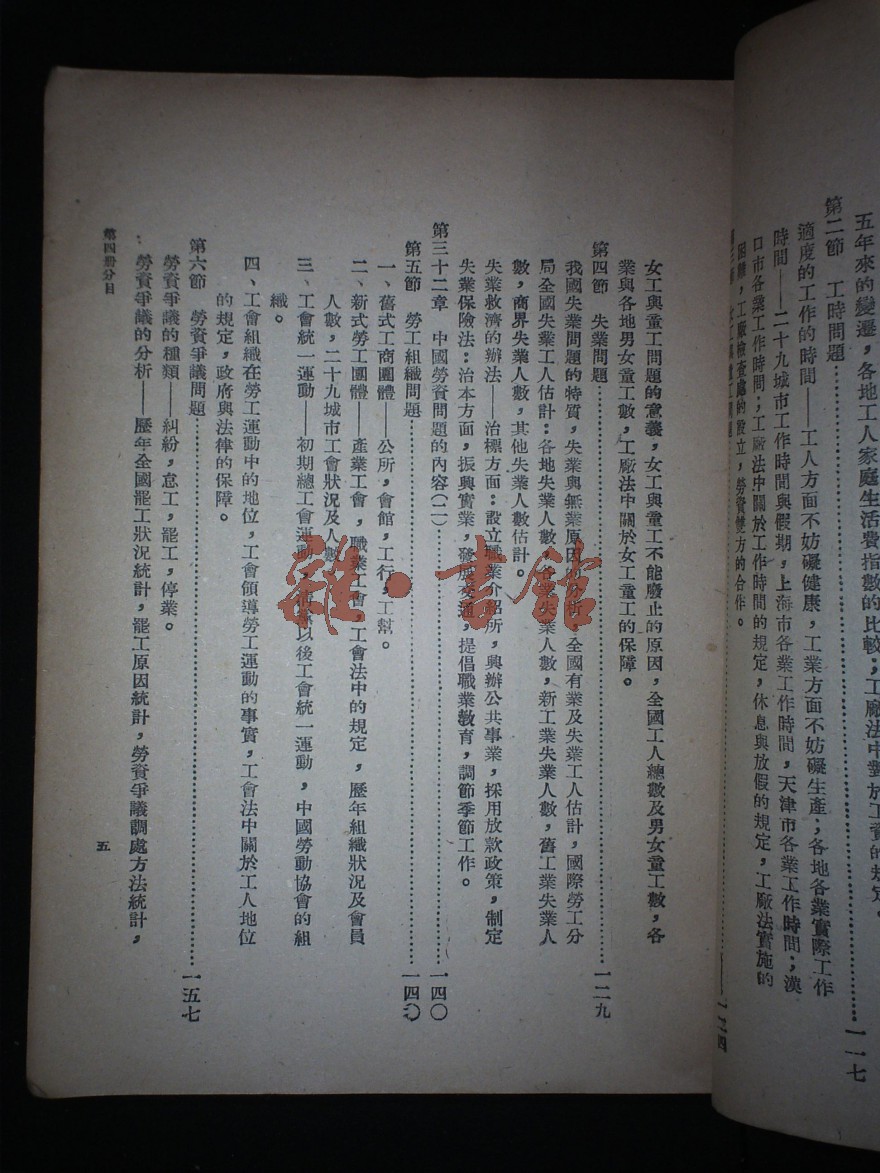 五年來的變遷，各地工人家庭生活費指數的比較；工廠法中對於工資的規定。
第二節　工時問題……一一七
適度的工作的時間——工人方面不妨礙健康，工業方面不妨礙生產；各地各業實際工作
時間——二十九城市工作時間與假期，上海市各業工作時間，天津市各業工作時間；漢
口市各業工作時間；工廠法中關於工作時間的規定，休息與放假的規定，工廠法實施的
困難，工廠檢查處的設立，勞資雙方的合作。
女工與童工問題的意義，女工與童工不能廢止的原因，全國工人總數及男女童工數，各
業與各地男女童工數，工廠法中關於女工童工的保障。
第四節　失業問題……一二九
我國失業問題的特質，失業與無業原因的分析，全國有業及失業工人估計，國際勞工分
局全國失業工人估計：各地失業人數，各業失業人數，新工業失業人數，舊工業失業人
數，商界失業人數，其他失業人數估計。
失業救濟的辦法——治標方面：設立職業介紹所，興辦公共事業，採用放款政策，制定
失業保險法：治本方面，振興實業，發展交通，提倡職業教育，調節季節工作。
第三十二章　中國勞資問題的內容（二）……一四〇
第五節　勞工組織問題……一四〇
一、舊式工商團體——公所，會館，工行，工幫。
二、新式勞工團體——產業工會，職業工會，工會法中的規定，歷年組織狀況及會員
人數，二十九城市工會狀況及人數
三、工會統一運動——初期總工會運動，清黨以後工會統一運動，中國勞動協會的組
織。
四、工會組織在勞工運動中的地位，工會領導勞工運動的事實，工會法中關於工人地位
的規定，政府與法律的保障。
第六節　勞資爭議問題……一五七
勞資爭議的種類——糾紛，怠工，罷工，停業。
勞資爭議的分析——歷年全國罷工狀況統計，罷工原因統計，勞資爭議調處方法統計，
第四冊分目
五
雜·書館